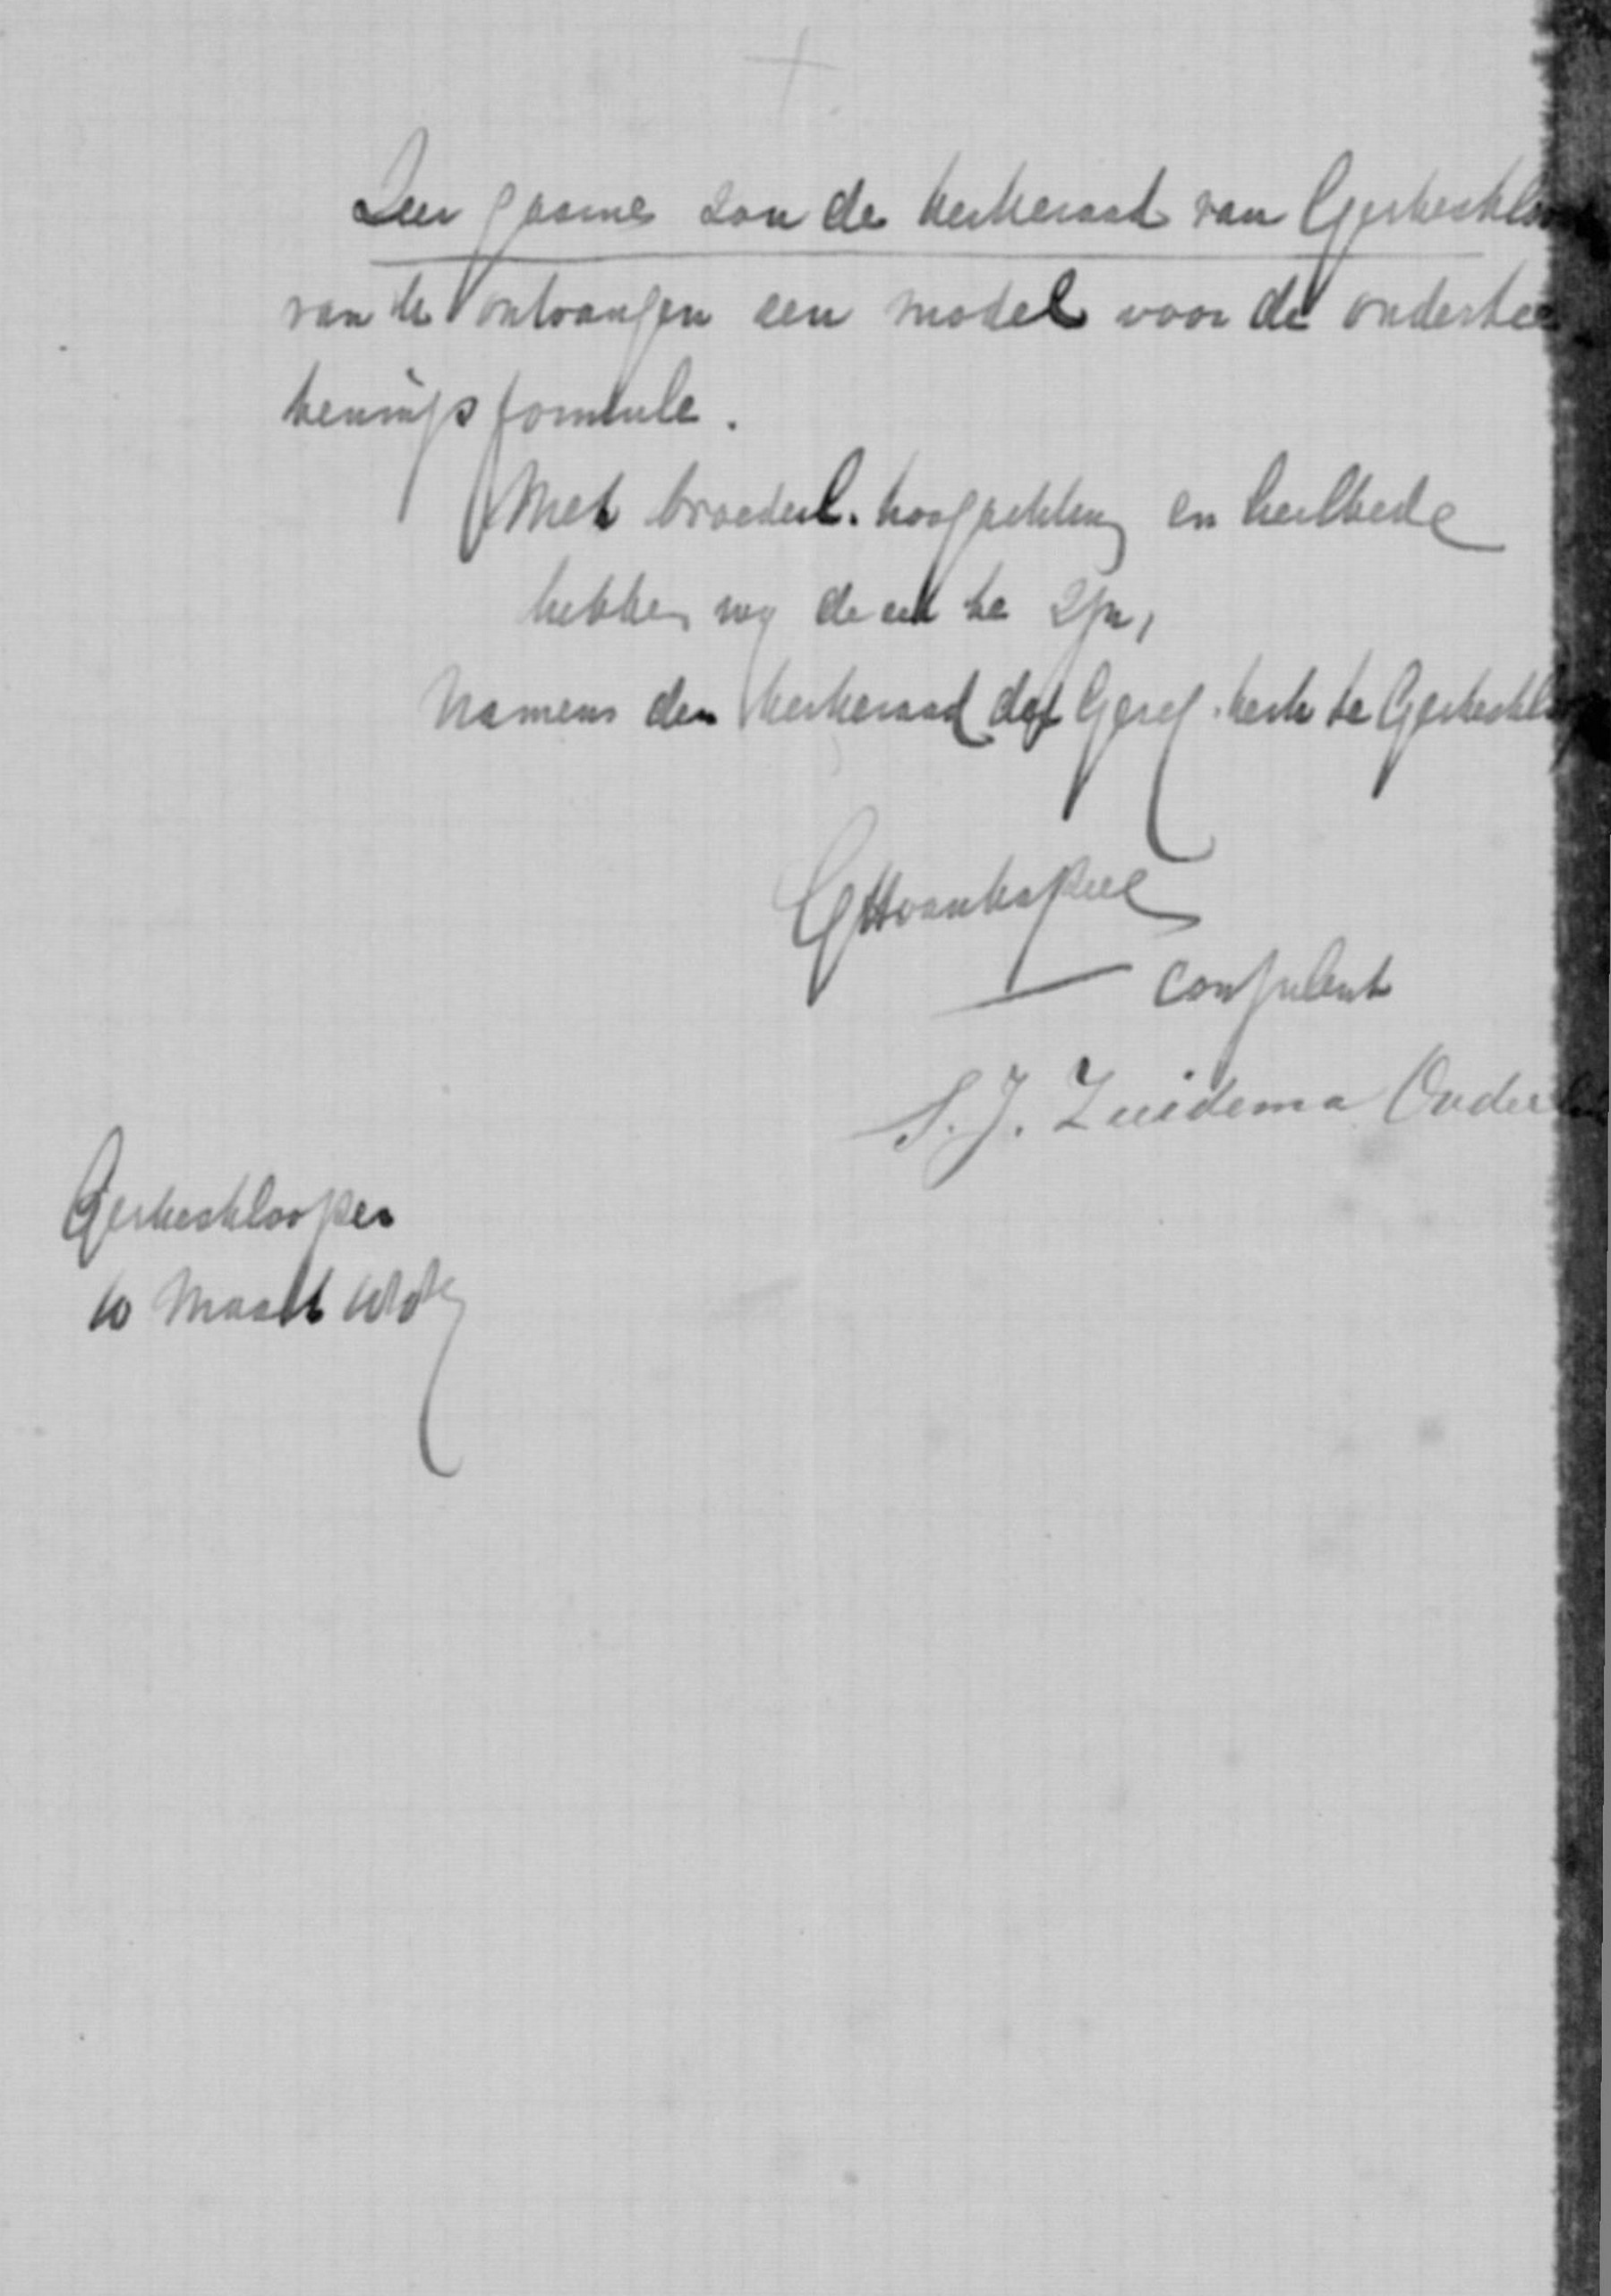 Zeer gaarne zou de kerkeraad van Gerkesklo
van U ontvangen een model voor de onderte
kenings formule.
Met broederl. hoogachting en heilbede
hebben wij de eer te zijn,
Namens den kerkeraad der Geref. kerk te Gerkeskl
consulent
S. J. Zuidema Ouder
Gerkesklooster
10 Maart